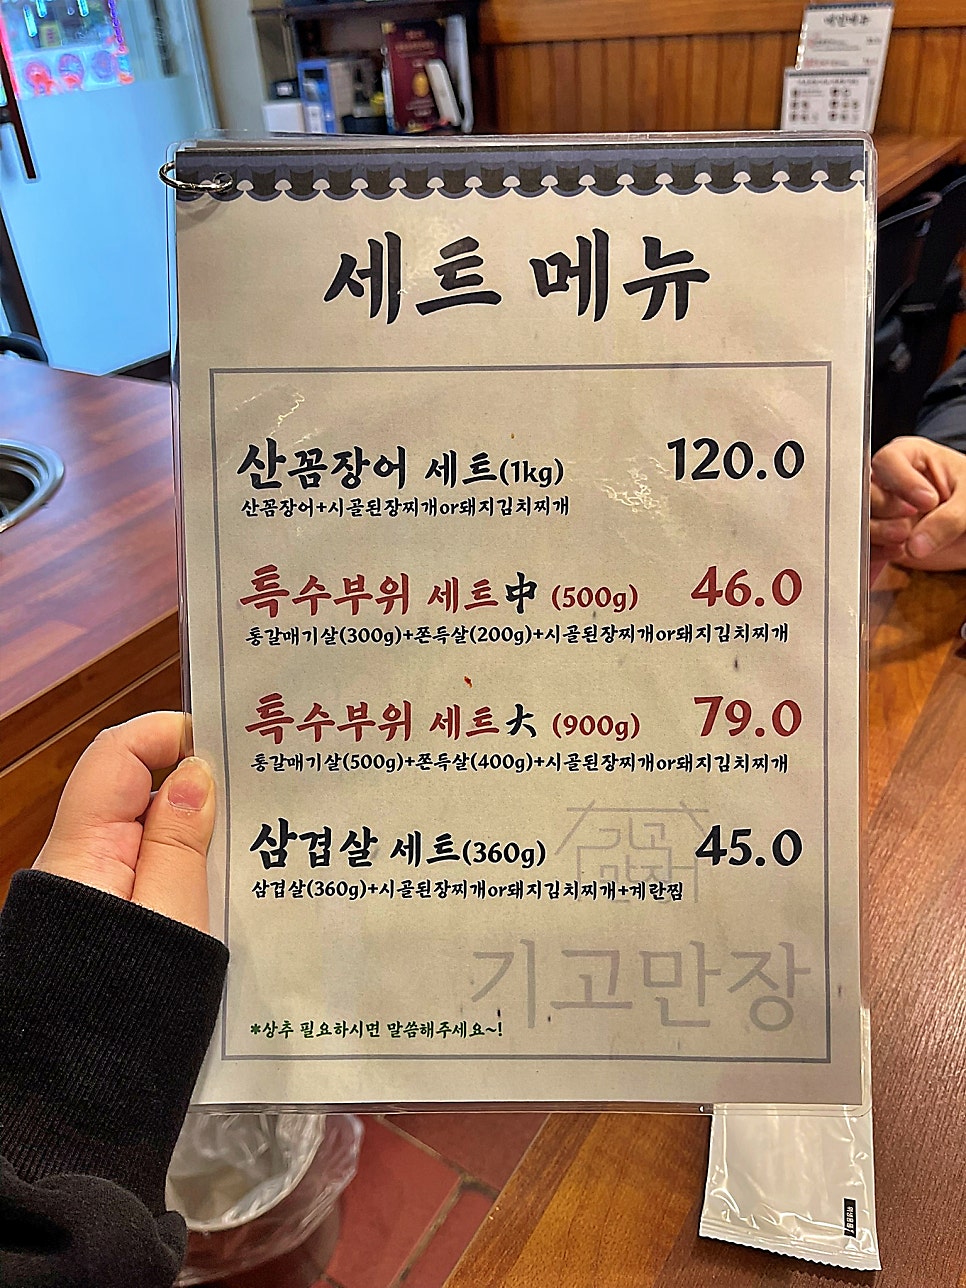 세트 메뉴
산꼼장어 세트(1kg) 120.0
산꼼장어+시골된장찌개or돼지김치찌개
특수부위 세트中 (500g) 46.0
통갈매기살(300g)+쫀득살(200g)+시골된장찌개or돼지김치찌개
특수부위 세트大 (900g) 79.0
통갈매기살(500g)+쫀득살(400g)+시골된장찌개or돼지김치찌개
삼겹살 세트(360g) 45.0
삼겹살(360g)+시골된장찌개or돼지김치찌개+계란찜
기고만장
기고만장
*상추 필요하시면 말씀해주세요~!